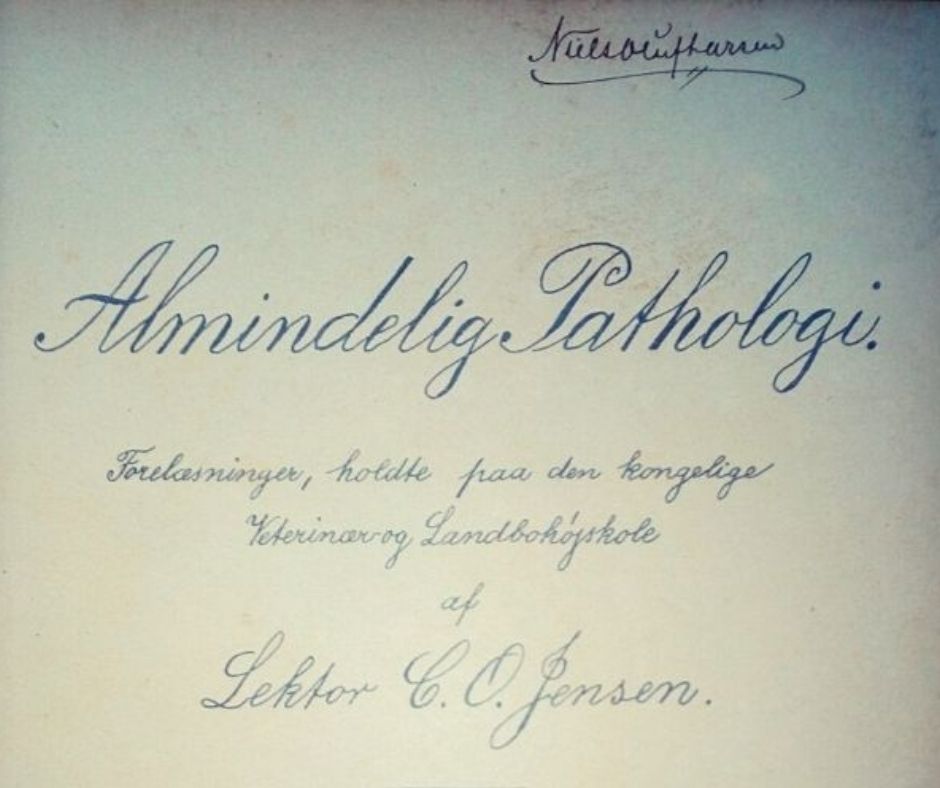 Niels Oluf Larsen
Almindelig Pathologi.
Forelæsninger, holdte paa den kongelige
Veterinær-og Landbohöjskole
af
Lektor C. O. Jensen.